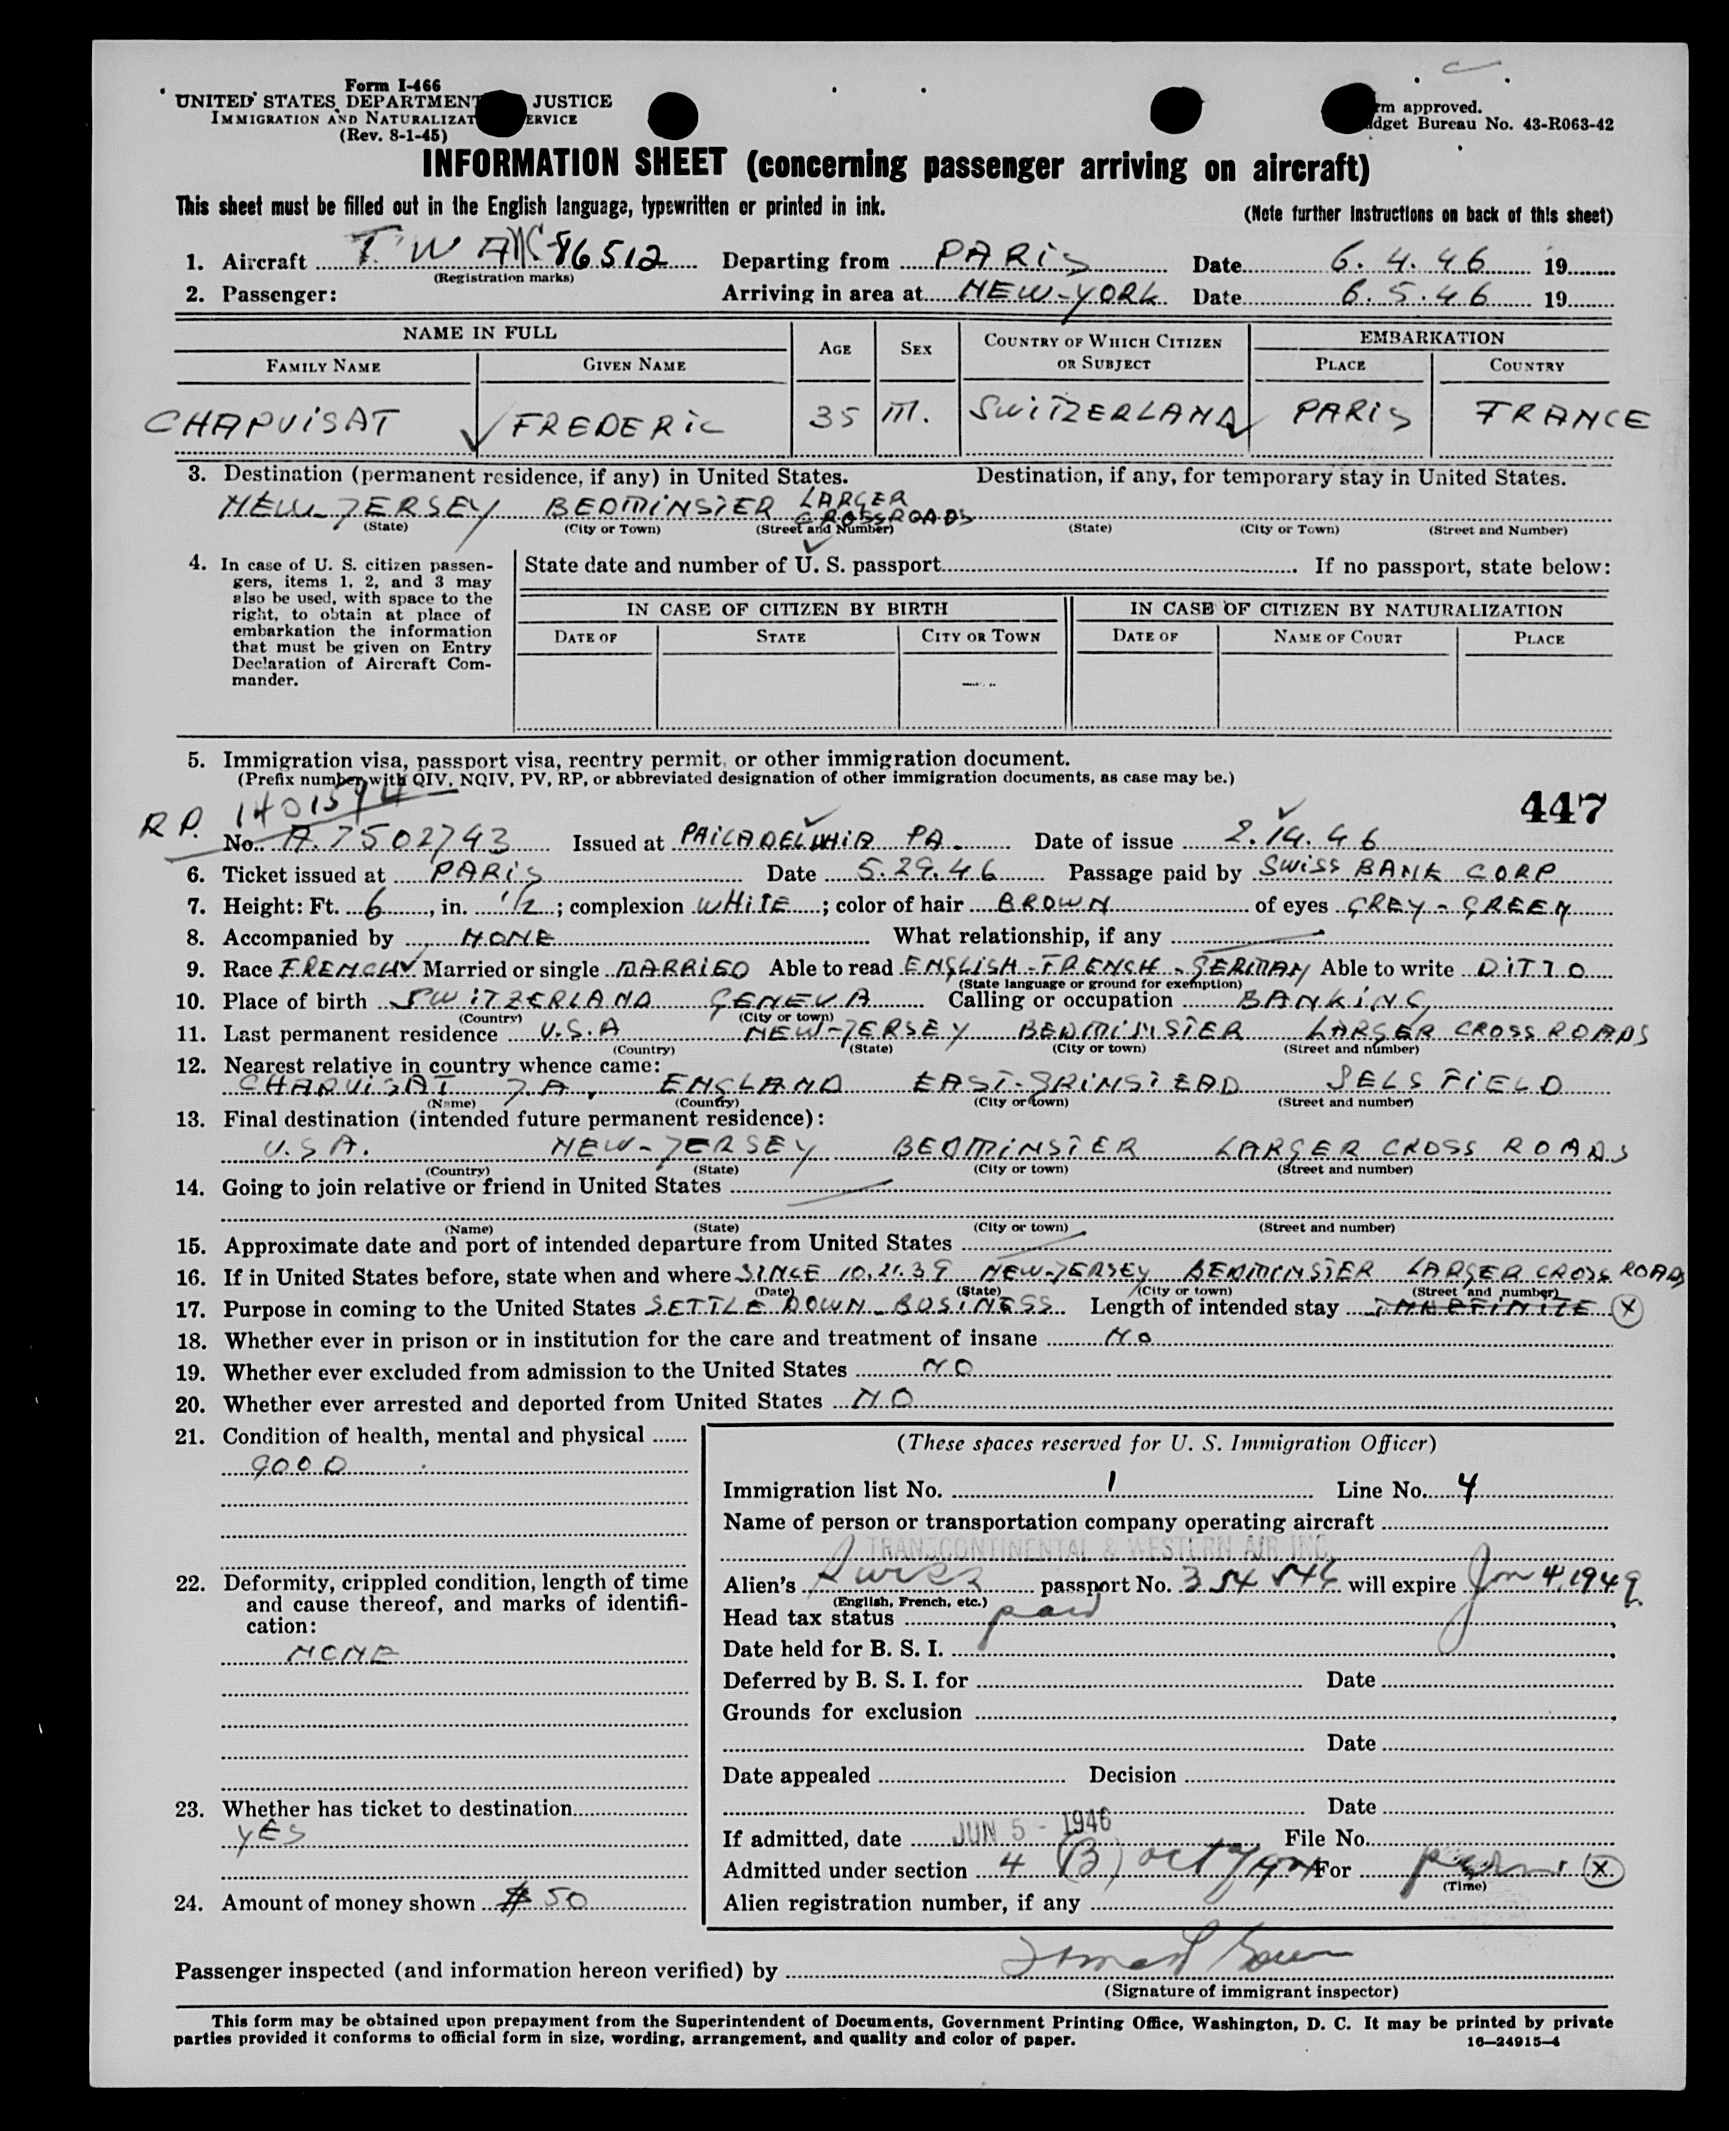 Form I-466
UNITED STATES DEPARTMENT JUSTICE
IMMIGRATION AND NATURALIZAT ERVICE
(Rev. 8-1-45)
rm approved.
dget Bureau No. 43-R063-42
INFORMATION SHEET (concerning passenger arriving on aircraft)
This sheet must be filled out in the English language, typewritten or printed in ink.
(Note further instructions on back of this sheet)
1. Aircraft T.W.A. NC 86512 Departing from PARIS Date 6.4.46 19
(Registration marks)
2. Passenger: Arriving in area at NEW-YORK Date 6.5.46 19
NAME IN FULL AGE SEX COUNTRY OF WHICH CITIZEN OR SUBJECT EMBARKATION
FAMILY NAME GIVEN NAME PLACE COUNTRY
CHAPUISAT FREDERIC 35 M. SWITZERLAND PARIS FRANCE
3. Destination (permanent residence, if any) in United States. Destination, if any, for temporary stay in United States.
NEW-JERSEY BEDMINSTER LARGER CROSSROADS
(State) (City or Town) (Street and Number) (State) (City or Town) (Street and Number)
4. In case of U. S. citizen passen-
gers, items 1, 2, and 3 may
also be used, with space to the
right, to obtain at place of
embarkation the information
that must be given on Entry
Declaration of Aircraft Com-
mander.
State date and number of U. S. passport If no passport, state below:
IN CASE OF CITIZEN BY BIRTH IN CASE OF CITIZEN BY NATURALIZATION
DATE OF STATE CITY OR TOWN DATE OF NAME OF COURT PLACE
5. Immigration visa, passport visa, reentry permit, or other immigration document.
(Prefix number with QIV, NQIV, PV, RP, or abbreviated designation of other immigration documents, as case may be.)
447
RP. 1401594
No. A.7502743 Issued at PHILADELPHIA PA. Date of issue 2.14.46
6. Ticket issued at PARIS Date 5.29.46 Passage paid by SWISS BANK CORP
7. Height: Ft. 6, in. 1/2; complexion WHITE; color of hair BROWN of eyes GREY-GREEN
8. Accompanied by NONE What relationship, if any
9. Race FRENCH Married or single MARRIED Able to read ENGLISH-FRENCH-GERMAN Able to write DITTO
(State language or ground for exemption)
10. Place of birth SWITZERLAND GENEVA Calling or occupation BANKING
(Country) (City or town)
11. Last permanent residence U.S.A NEW-JERSEY BEDMINSTER LARGER CROSS ROADS
(Country) (State) (City or town) (Street and number)
12. Nearest relative in country whence came:
CHAPUISAT J.A, ENGLAND EAST-GRINSTEAD SELSFIELD
(Name) (Country) (City or town) (Street and number)
13. Final destination (intended future permanent residence):
U.S.A. NEW-JERSEY BEDMINSTER LARGER CROSS ROADS
(Country) (State) (City or town) (Street and number)
14. Going to join relative or friend in United States
(Name) (State) (City or town) (Street and number)
15. Approximate date and port of intended departure from United States
16. If in United States before, state when and where SINCE 10.21.39 NEW-JERSEY BEDMINSTER LARGER CROSS ROADS
(Date) (State) (City or town) (Street and number)
17. Purpose in coming to the United States SETTLE DOWN-BUSINESS Length of intended stay INDEFINITE X
18. Whether ever in prison or in institution for the care and treatment of insane NO
19. Whether ever excluded from admission to the United States NO
20. Whether ever arrested and deported from United States NO
21. Condition of health, mental and physical
GOOD
22. Deformity, crippled condition, length of time
and cause thereof, and marks of identifi-
cation:
NONE
23. Whether has ticket to destination
YES
24. Amount of money shown $50
(These spaces reserved for U. S. Immigration Officer)
Immigration list No. 1 Line No. 4
Name of person or transportation company operating aircraft
TRANSCONTINENTAL & WESTERN AIR INC.
Alien's Swiss passport No. 354546 will expire Jan 4, 1949
(English, French, etc.)
Head tax status paid
Date held for B. S. I.
Deferred by B. S. I. for Date
Grounds for exclusion
Date
Date appealed Decision
Date
If admitted, date JUN 5 - 1946 File No.
Admitted under section 4 (B) act 1924 For perm X
(Time)
Alien registration number, if any
Passenger inspected (and information hereon verified) by
(Signature of immigrant inspector)
This form may be obtained upon prepayment from the Superintendent of Documents, Government Printing Office, Washington, D. C. It may be printed by private
parties provided it conforms to official form in size, wording, arrangement, and quality and color of paper.
16—24915-4